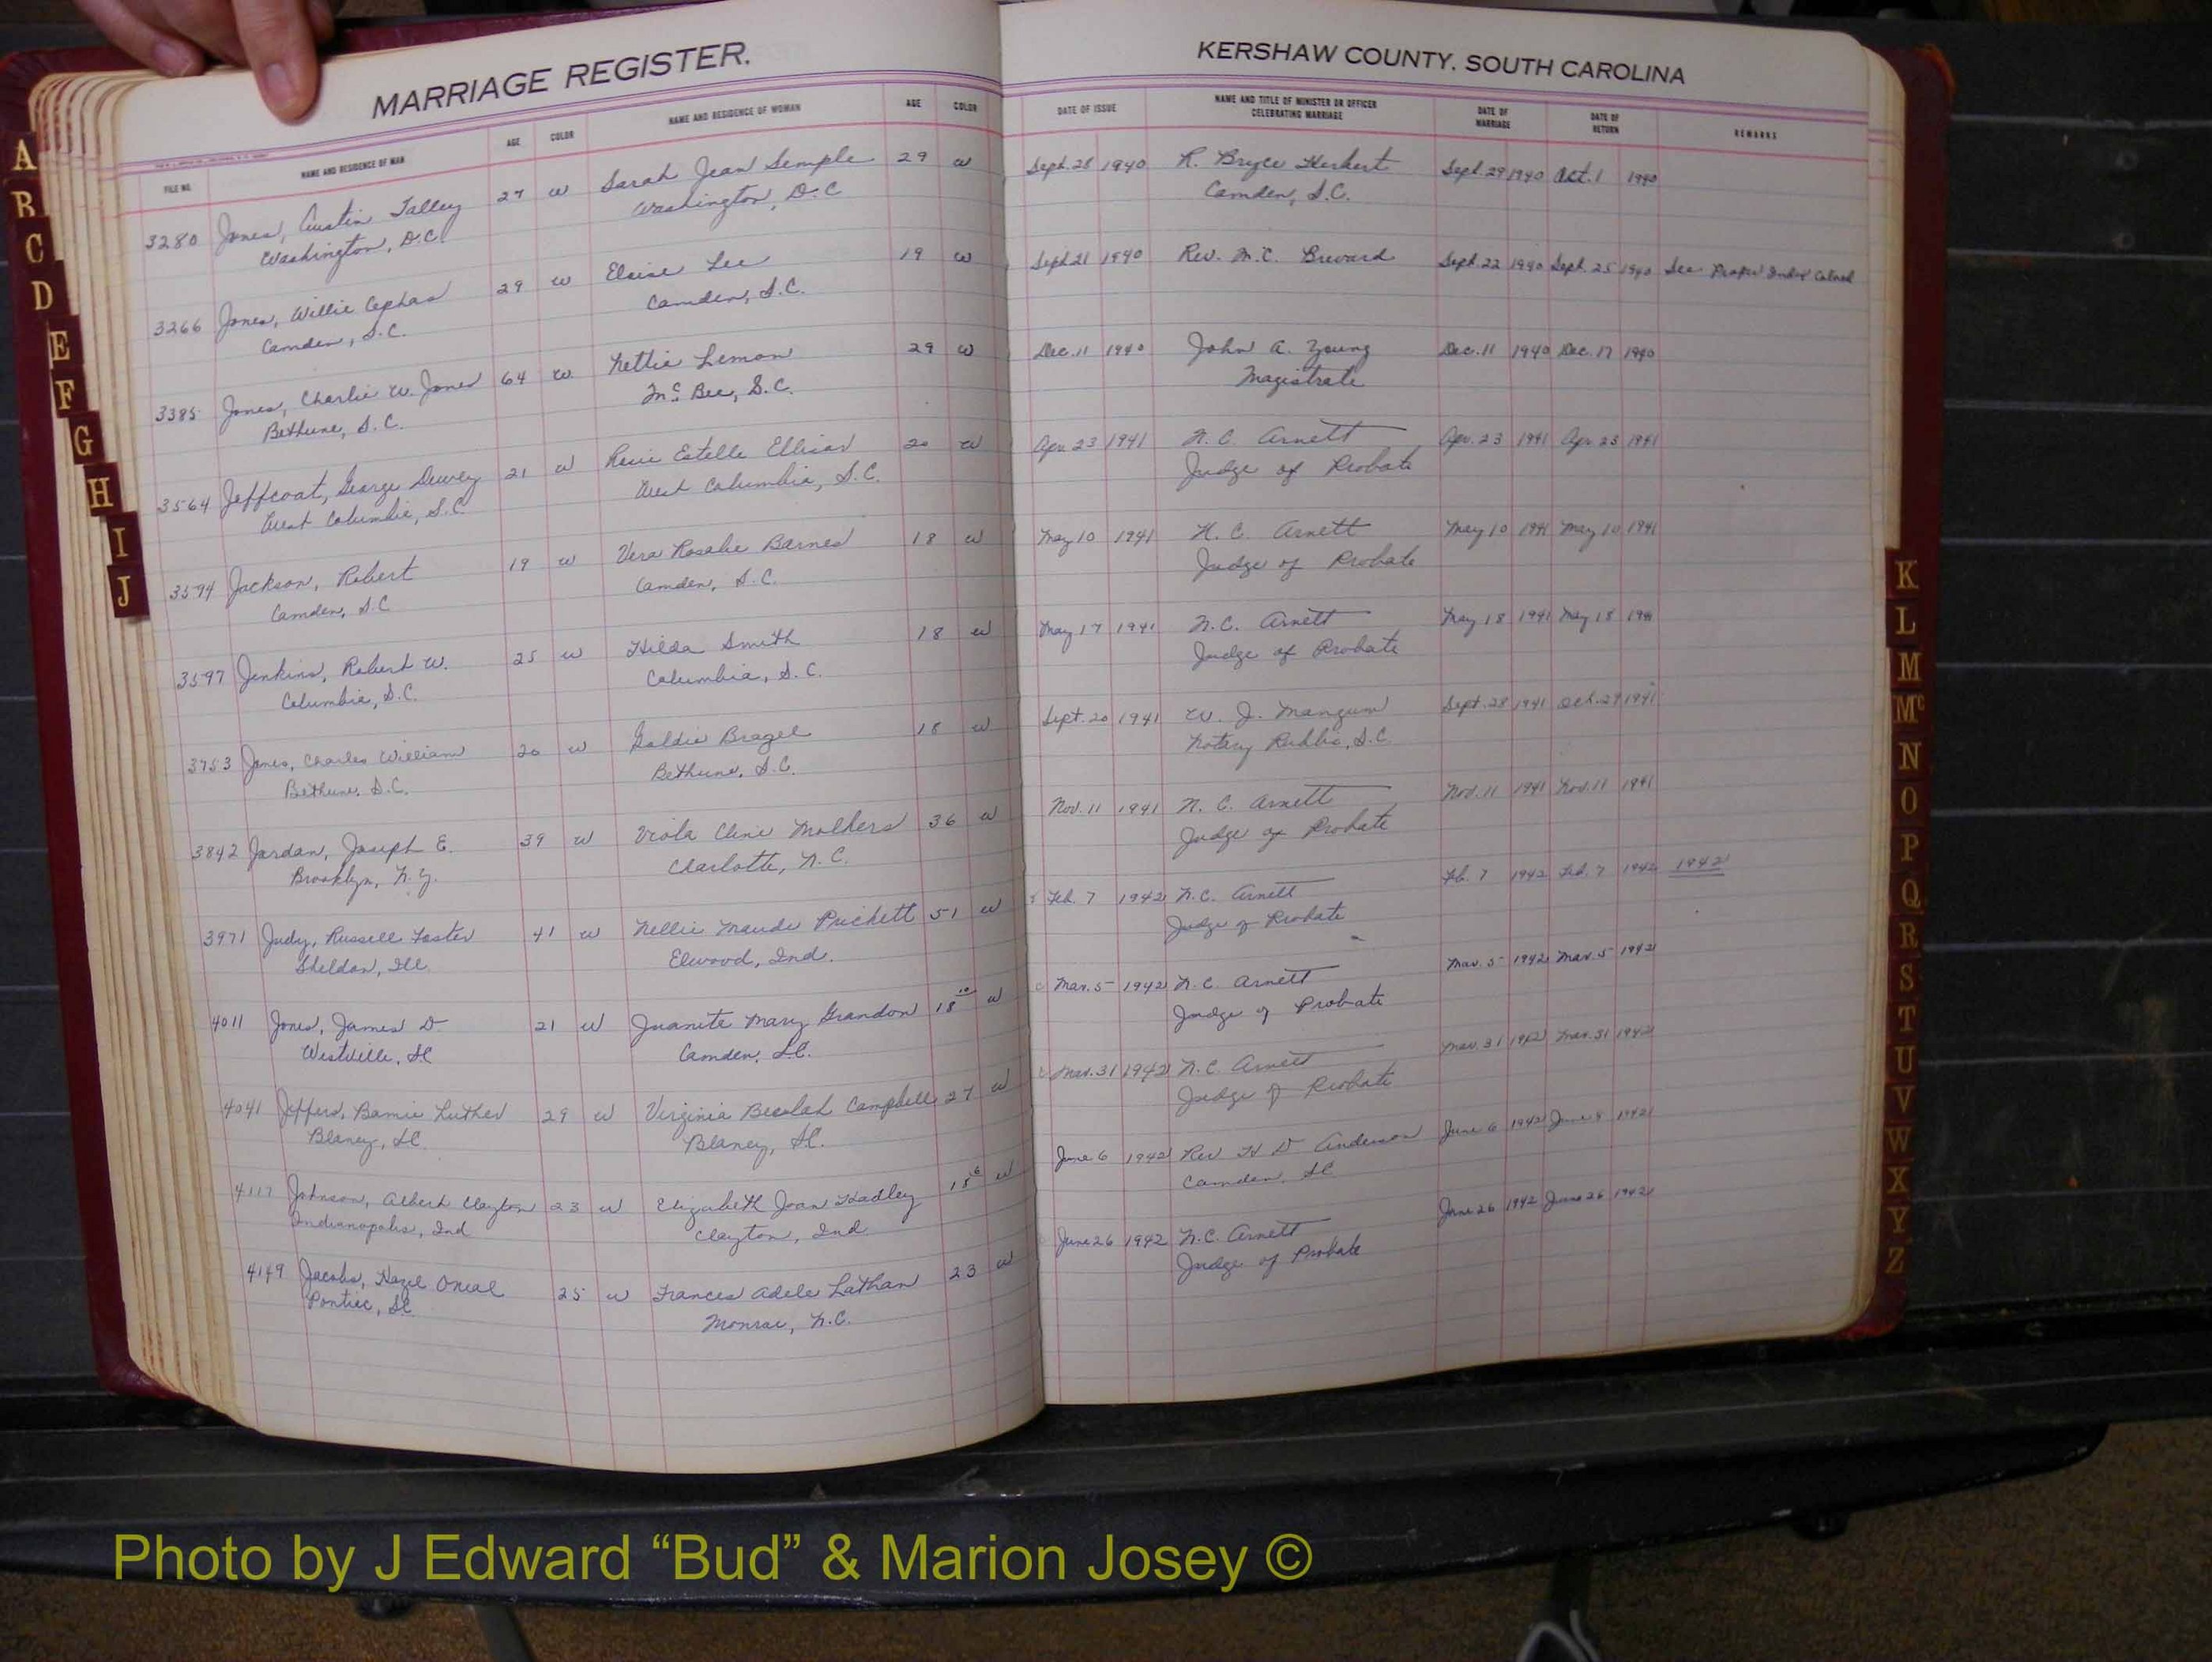 MARRIAGE REGISTER.
KERSHAW COUNTY, SOUTH CAROLINA
FILE NO. NAME AND RESIDENCE OF MAN AGE COLOR NAME AND RESIDENCE OF WOMAN AGE COLOR DATE OF ISSUE NAME AND TITLE OF MINISTER OR OFFICER CELEBRATING MARRIAGE DATE OF MARRIAGE DATE OF RETURN REMARKS
3280 Jones, Austin Talley 27 w Sarah Jean Semple 29 w Sept. 28 1940 R. Bryce Herbert Sept. 29 1940 Oct. 1 1940
Washington, D.C. Washington, D.C Camden, S.C.
3266 Jones, Willie Cephas 29 w Eloise Lee 19 w Sept 21 1940 Rev. M.C. Brevard Sept. 22 1940 Sept. 25 1940 See Proper Index Colored
Camden, S.C. Camden, S.C.
3385 Jones, Charlie W. Jones 64 w Nettie Lemon 29 w Dec. 11 1940 John A. Young Dec. 11 1940 Dec. 17 1940
Bethune, S.C. Mc Bee, S.C. Magistrate
3564 Jeffcoat, George Dewey 21 w Estelle 20 w Apr. 23 1941 N. C. Arnett Apr. 23 1941 Apr. 23 1941
West Columbia, S.C. West Columbia, S.C. Judge of Probate
3594 Jackson, Robert 19 w Vera Rosalie Barnes 18 w May 10 1941 N. C. Arnett May 10 1941 May 10 1941
Camden, S.C Camden, S.C. Judge of Probate
3597 Jenkins, Robert W. 25 w Hilda Smith 18 w May 17 1941 N.C. Arnett May 18 1941 May 18 1941
Columbia, S.C. Columbia, S.C. Judge of Probate
3753 Jones, Charles William 20 w Goldie Brazel 18 w Sept. 20 1941 W. J. Mangum Sept. 28 1941 Oct. 29 1941
Bethune, S.C. Bethune, S.C. Notary Public, S.C.
3842 Jordan, Joseph E. 39 w Viola Cline Mothers 36 w Nov. 11 1941 N. C. Arnett Nov. 11 1941 Nov. 11 1941
Brooklyn, N.Y. Charlotte, N.C. Judge of Probate
3971 Judy, Russell Foster 41 w Nellie Maude Prickett 51 w Feb. 7 1942 N.C. Arnett Feb. 7 1942 Feb. 7 1942 1942
Sheldon, Ill. Elwood, Ind. Judge of Probate
4011 Jones, James D 21 w Juanite Mary Grandon 18 10 w Mar. 5 1942 N.C. Arnett Mar. 5 1942 Mar. 5 1942
Westville, SC Camden, S.C. Judge of Probate
4041 Jeffers, Bamie Luther 29 w Virginia Beulah Campbell 27 w Mar. 31 1942 N.C. Arnett Mar. 31 1942 Mar. 31 1942
Blaney, SC Blaney, SC. Judge of Probate
4117 Johnson, Albert Clayton 23 w Elizabeth Joan Hadley 15 6 w June 6 1942 Rev H D Anderson June 6 1942 June 1942
Indianapolis, Ind Clayton, Ind Camden, SC
4149 Jacobs, Hazel Oneal 25 w Frances Adele Lathan 23 w June 26 1942 N.C. Arnett June 26 1942 June 26 1942
Pontiac, SC Monroe, N.C. Judge of Probate
A
B
C
D
E
F
G
H
I
J
K
L
M
Mc
N
O
P
Q
R
S
T
U
V
W
X
Y
Z
Photo by J Edward “Bud” & Marion Josey ©